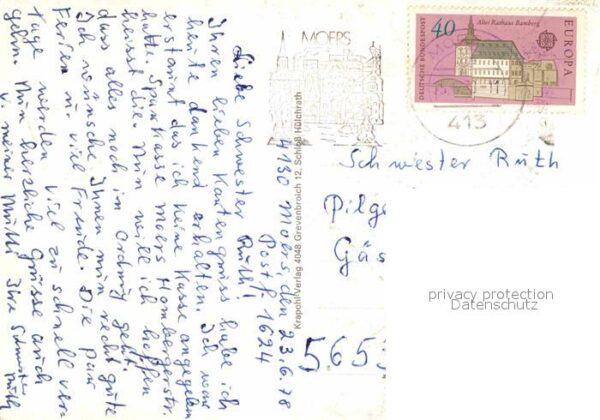 4130 Moers, den 23.6.78
Postf. 1624
Liebe Schwester Ruth!
Ihren lieben Kartengruss habe ich
heute dankend erhalten. Ich war
erstaunt das ich keine Kasse angegeben
hatte. Sparkasse Moers Hombergerstr.
heisst die. Nun will ich hoffen
dass alles noch in Ordnung geht.
Ich wünsche Ihnen nun recht gute
Ferien u. viel Freude. Die paar
Tage werden viel zu schnell ver
gehn. Nun herzliche Grüsse auch
v. meiner Mutti Ihre Schwester
Ruth
Krapohl-Verlag 4048 Grevenbroich 12. Schloß Hülchrath
MOERS
413
40
Altes Rathaus Bamberg
DEUTSCHE BUNDESPOST
EUROPA
Schwester Ruth
Pilge
Gäs
565
privacy protection
Datenschutz